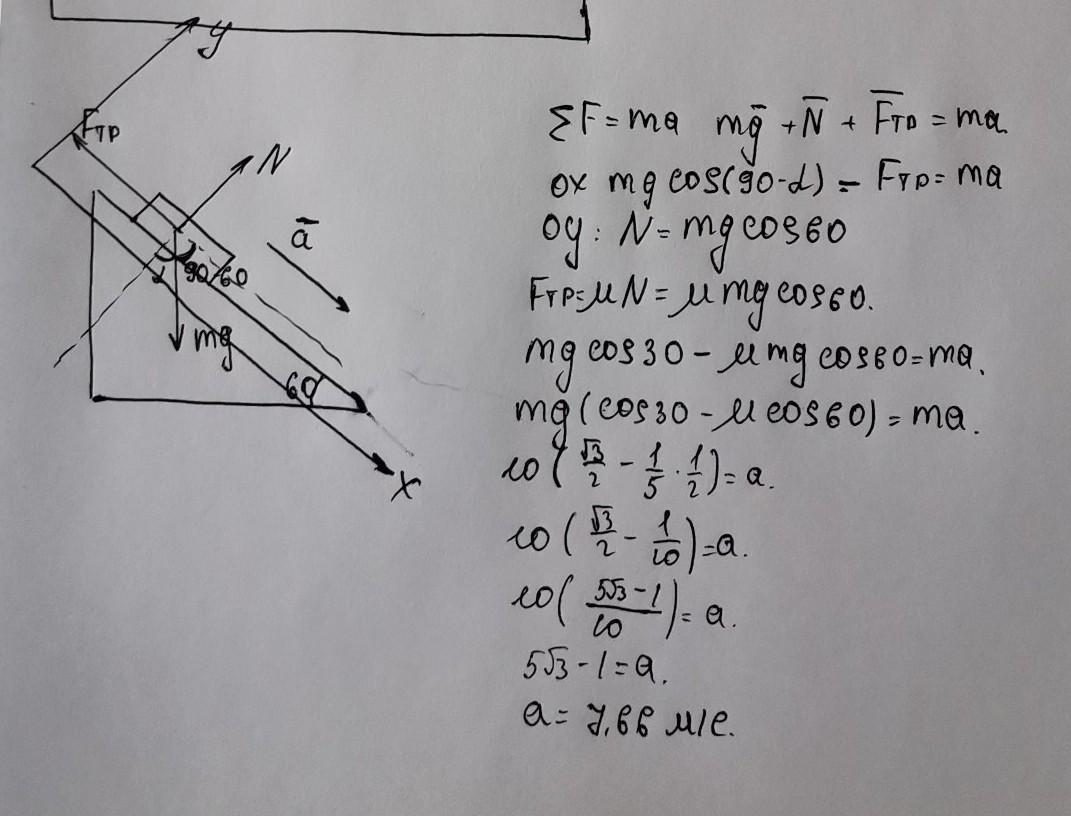 y
Fтр
N
a̅
90/60
α
mg
60
X
ΣF = ma   mg̅ + N̅ + F̅тр = ma.
ox mg cos(90-α) - Fтр = ma
oy: N = mg cos60
Fтр = μN = μmg cos60.
mg cos30 - μmg cos60 = ma.
mg(cos30 - μcos60) = ma.
10(√3/2 - 1/5 · 1/2) = a.
10(√3/2 - 1/10) = a.
10((5√3 - 1)/10) = a.
5√3 - 1 = a.
a = 7,66 м/с.